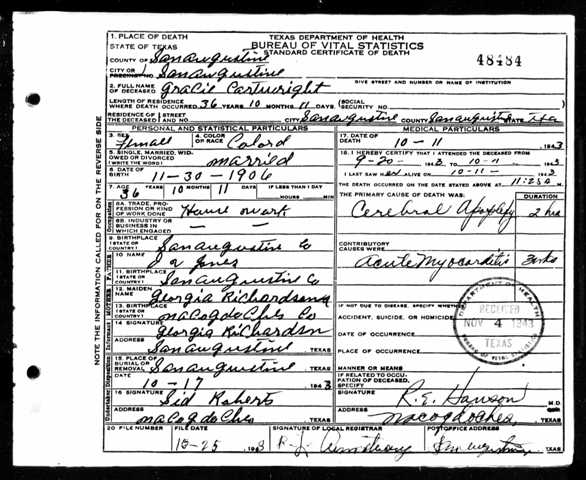 TEXAS DEPARTMENT OF HEALTH
BUREAU OF VITAL STATISTICS
STANDARD CERTIFICATE OF DEATH
48484
1. PLACE OF DEATH
STATE OF TEXAS
COUNTY OF San augustine
CITY OR PRECINCT NO. San augustine
GIVE STREET AND NUMBER OR NAME OF INSTITUTION
2. FULL NAME OF DECEASED Gracie Cartwright
LENGTH OF RESIDENCE WHERE DEATH OCCURRED 36 YEARS 10 MONTHS 11 DAYS (SOCIAL SECURITY NO.
RESIDENCE OF THE DECEASED STREET AND NO. CITY San augustine COUNTY San augustine STATE
PERSONAL AND STATISTICAL PARTICULARS
3. SEX Femall
4. COLOR OR RACE Colord
5. SINGLE, MARRIED, WIDOWED OR DIVORCED (WRITE THE WORD) married
6. DATE OF BIRTH 11-30-1906
7. AGE 36 YEARS 10 MONTHS 11 DAYS IF LESS THAN 1 DAY HOURS MIN.
8A. TRADE, PROFESSION OR KIND OF WORK DONE House
8B. INDUSTRY OR BUSINESS IN WHICH ENGAGED —
9. BIRTHPLACE (STATE OR COUNTRY) San augustine Co
10. NAME Jones
11. BIRTHPLACE (STATE OR COUNTRY) San augustine Co
12. MAIDEN NAME Georgia Richardson
13. BIRTHPLACE (STATE OR COUNTRY) nacogdoches Co
14. SIGNATURE Georgia Richardsn
ADDRESS San augustine TEXAS
15. PLACE OF BURIAL OR REMOVAL San augustine TEXAS
DATE 10-17 1943
16. SIGNATURE Sid Roberts
ADDRESS nacogdoches TEXAS
MEDICAL PARTICULARS
17. DATE OF DEATH 10-11 1943
18. I HEREBY CERTIFY THAT I ATTENDED THE DECEASED FROM
9-20- 1943 TO 10-11 1943
I LAST SAW her ALIVE ON 10-11- 1943
THE DEATH OCCURRED ON THE DATE STATED ABOVE AT 11:25
THE PRIMARY CAUSE OF DEATH WAS: DURATION
Cerebral Apoplexy 2 hrs
CONTRIBUTORY CAUSES WERE:
Acute Myocarditis 3 wks
IF DEATH WAS DUE TO EXTERNAL CAUSES, SPECIFY WHETHER
ACCIDENT, SUICIDE, OR HOMICIDE
DATE OF OCCURRENCE
PLACE OF OCCURRENCE
MANNER OR MEANS
IF RELATED TO OCCUPATION OF DECEASED, SPECIFY
SIGNATURE M.D.
ADDRESS Nacogdoches, TEXAS
DEPARTMENT OF HEALTH
RECEIVED
NOV 4 1943
TEXAS
BUREAU OF VITAL STATISTICS
20 FILE NUMBER
FILE DATE 10-25 1943
SIGNATURE OF LOCAL REGISTRAR R. L. Armstrong
POSTOFFICE ADDRESS San augustine
NOTE THE INFORMATION CALLED FOR ON THE REVERSE SIDE
Occupation
FATHER
MOTHER
Informant
Undertaker Disposition